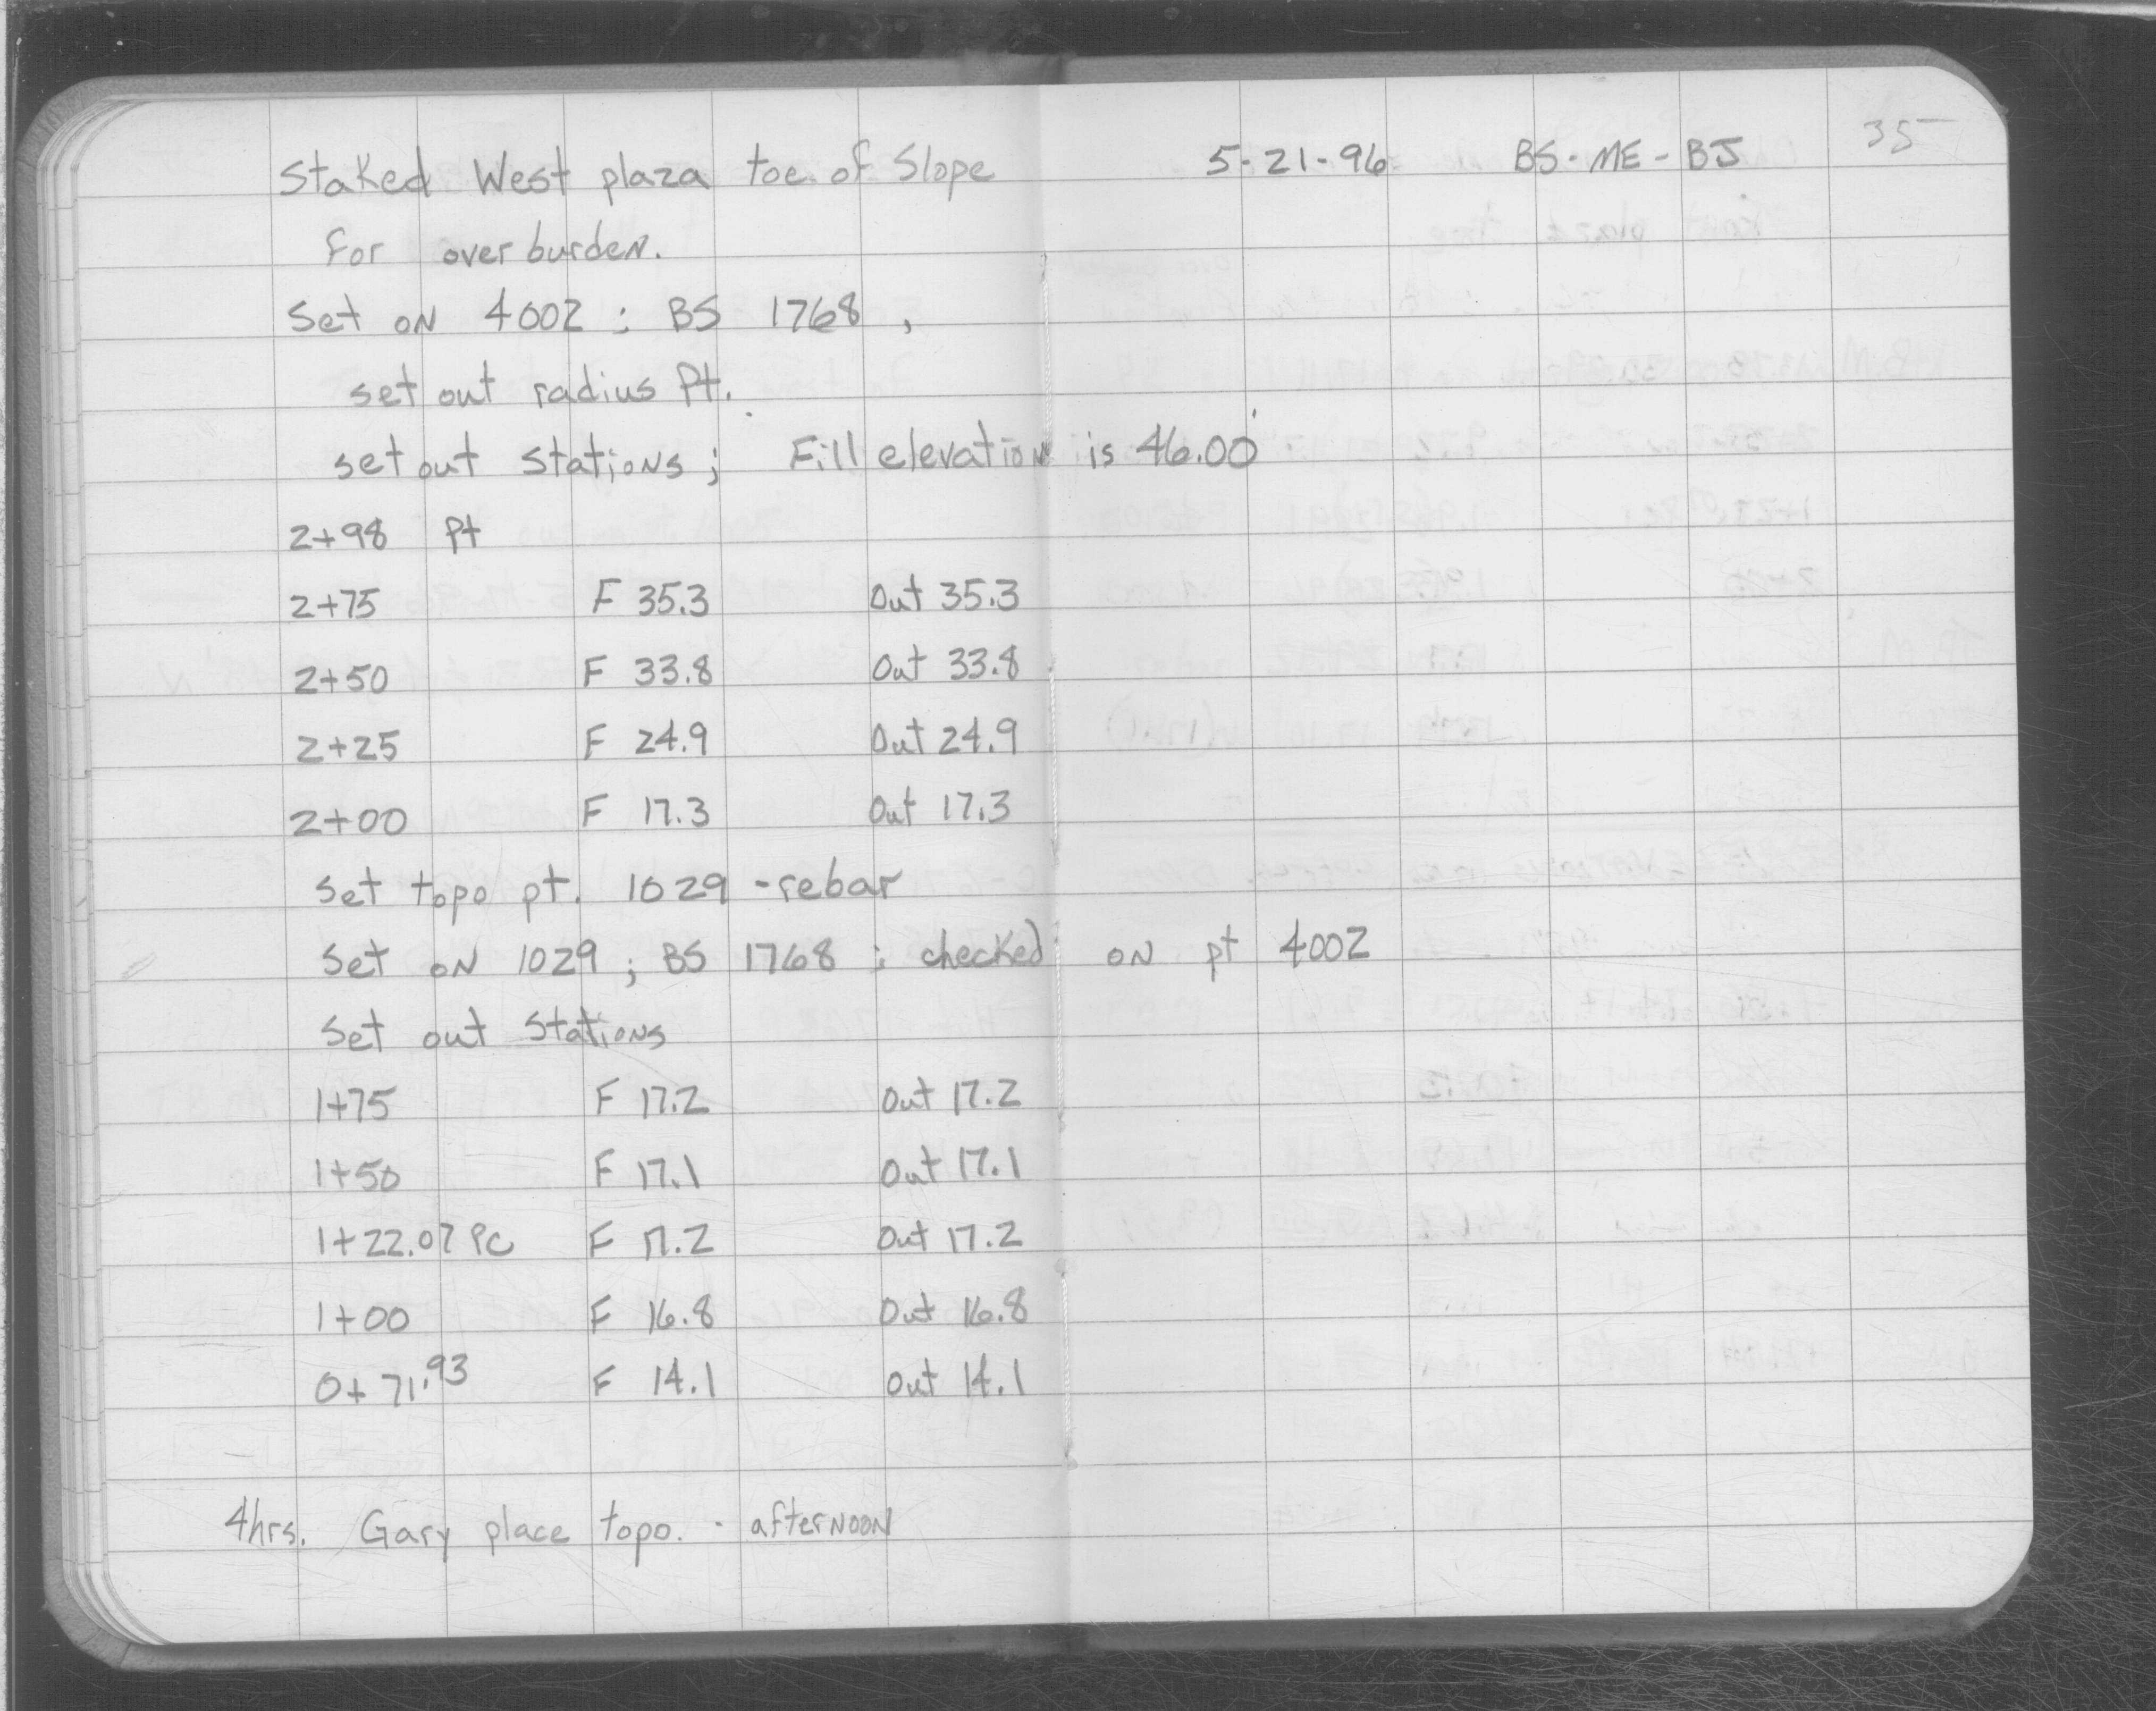 35
Staked West plaza toe of Slope 5-21-96 BS-ME-BJ
for over burden.
Set on 4002 : BS 1768 ,
set out radius Pt.
set out stations ; Fill elevation is 46.00'
2+98 Pt
2+75 F 35.3 Out 35.3
2+50 F 33.8 Out 33.8
2+25 F 24.9 Out 24.9
2+00 F 17.3 Out 17.3
Set topo pt. 1029 - rebar
Set on 1029 ; BS 1768 : checked on pt 4002
Set out Stations
1+75 F 17.2 Out 17.2
1+50 F 17.1 Out 17.1
1+22.07 PC F 17.2 Out 17.2
1+00 F 16.8 Out 16.8
0+71.93 F 14.1 Out 14.1
4hrs. Gary place topo. - afternoon